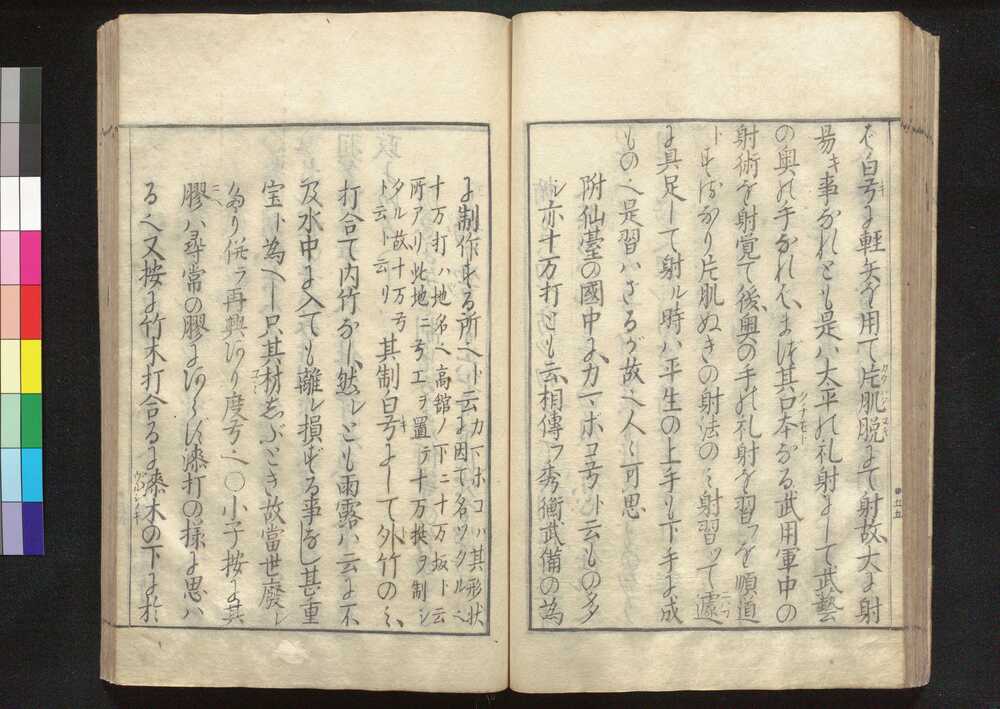 ば白弓に軽矢を用て片肌脱にて射故大に射
易き事なれとも是ハ大平の礼射にして武藝
の奥の手なれハ、まづ其口本なる武用軍中の
射術を射覚て後奥の手の礼射を習ふを順道
トするなり片肌ぬきの射法のミ射習ッて遽
に具足して射ル時ハ平生の上手も下手に成
もの也是習ハさるが故也人々可思
附仙臺の國中に、カマボコ弓ト云もの多
シ亦十万打とも云、相傳フ秀衡武備の為
に制作する所也ト云カマホコハ其形状
に因て名ツクル也
十万打ハ地名也高舘ノ下ニ十万坂ト云
所アリ此地ニ弓工ヲ置テ十万挾ヲ制シ
タル故十万弓
ト云ト云リ
其制白弓にして外竹のミ、
打合て内竹なし、然レとも雨露ハ云に不
及水中に入ても離レ損ずる事なし甚重
宝ト為へし只其材しぶとき故當世廃レ
たり併ラ再興ありり度弓也〇小子按に其
膠ハ尋常の膠にあらず漆打の様に思ハ
る也又按に竹木打合るに漆木の下に於